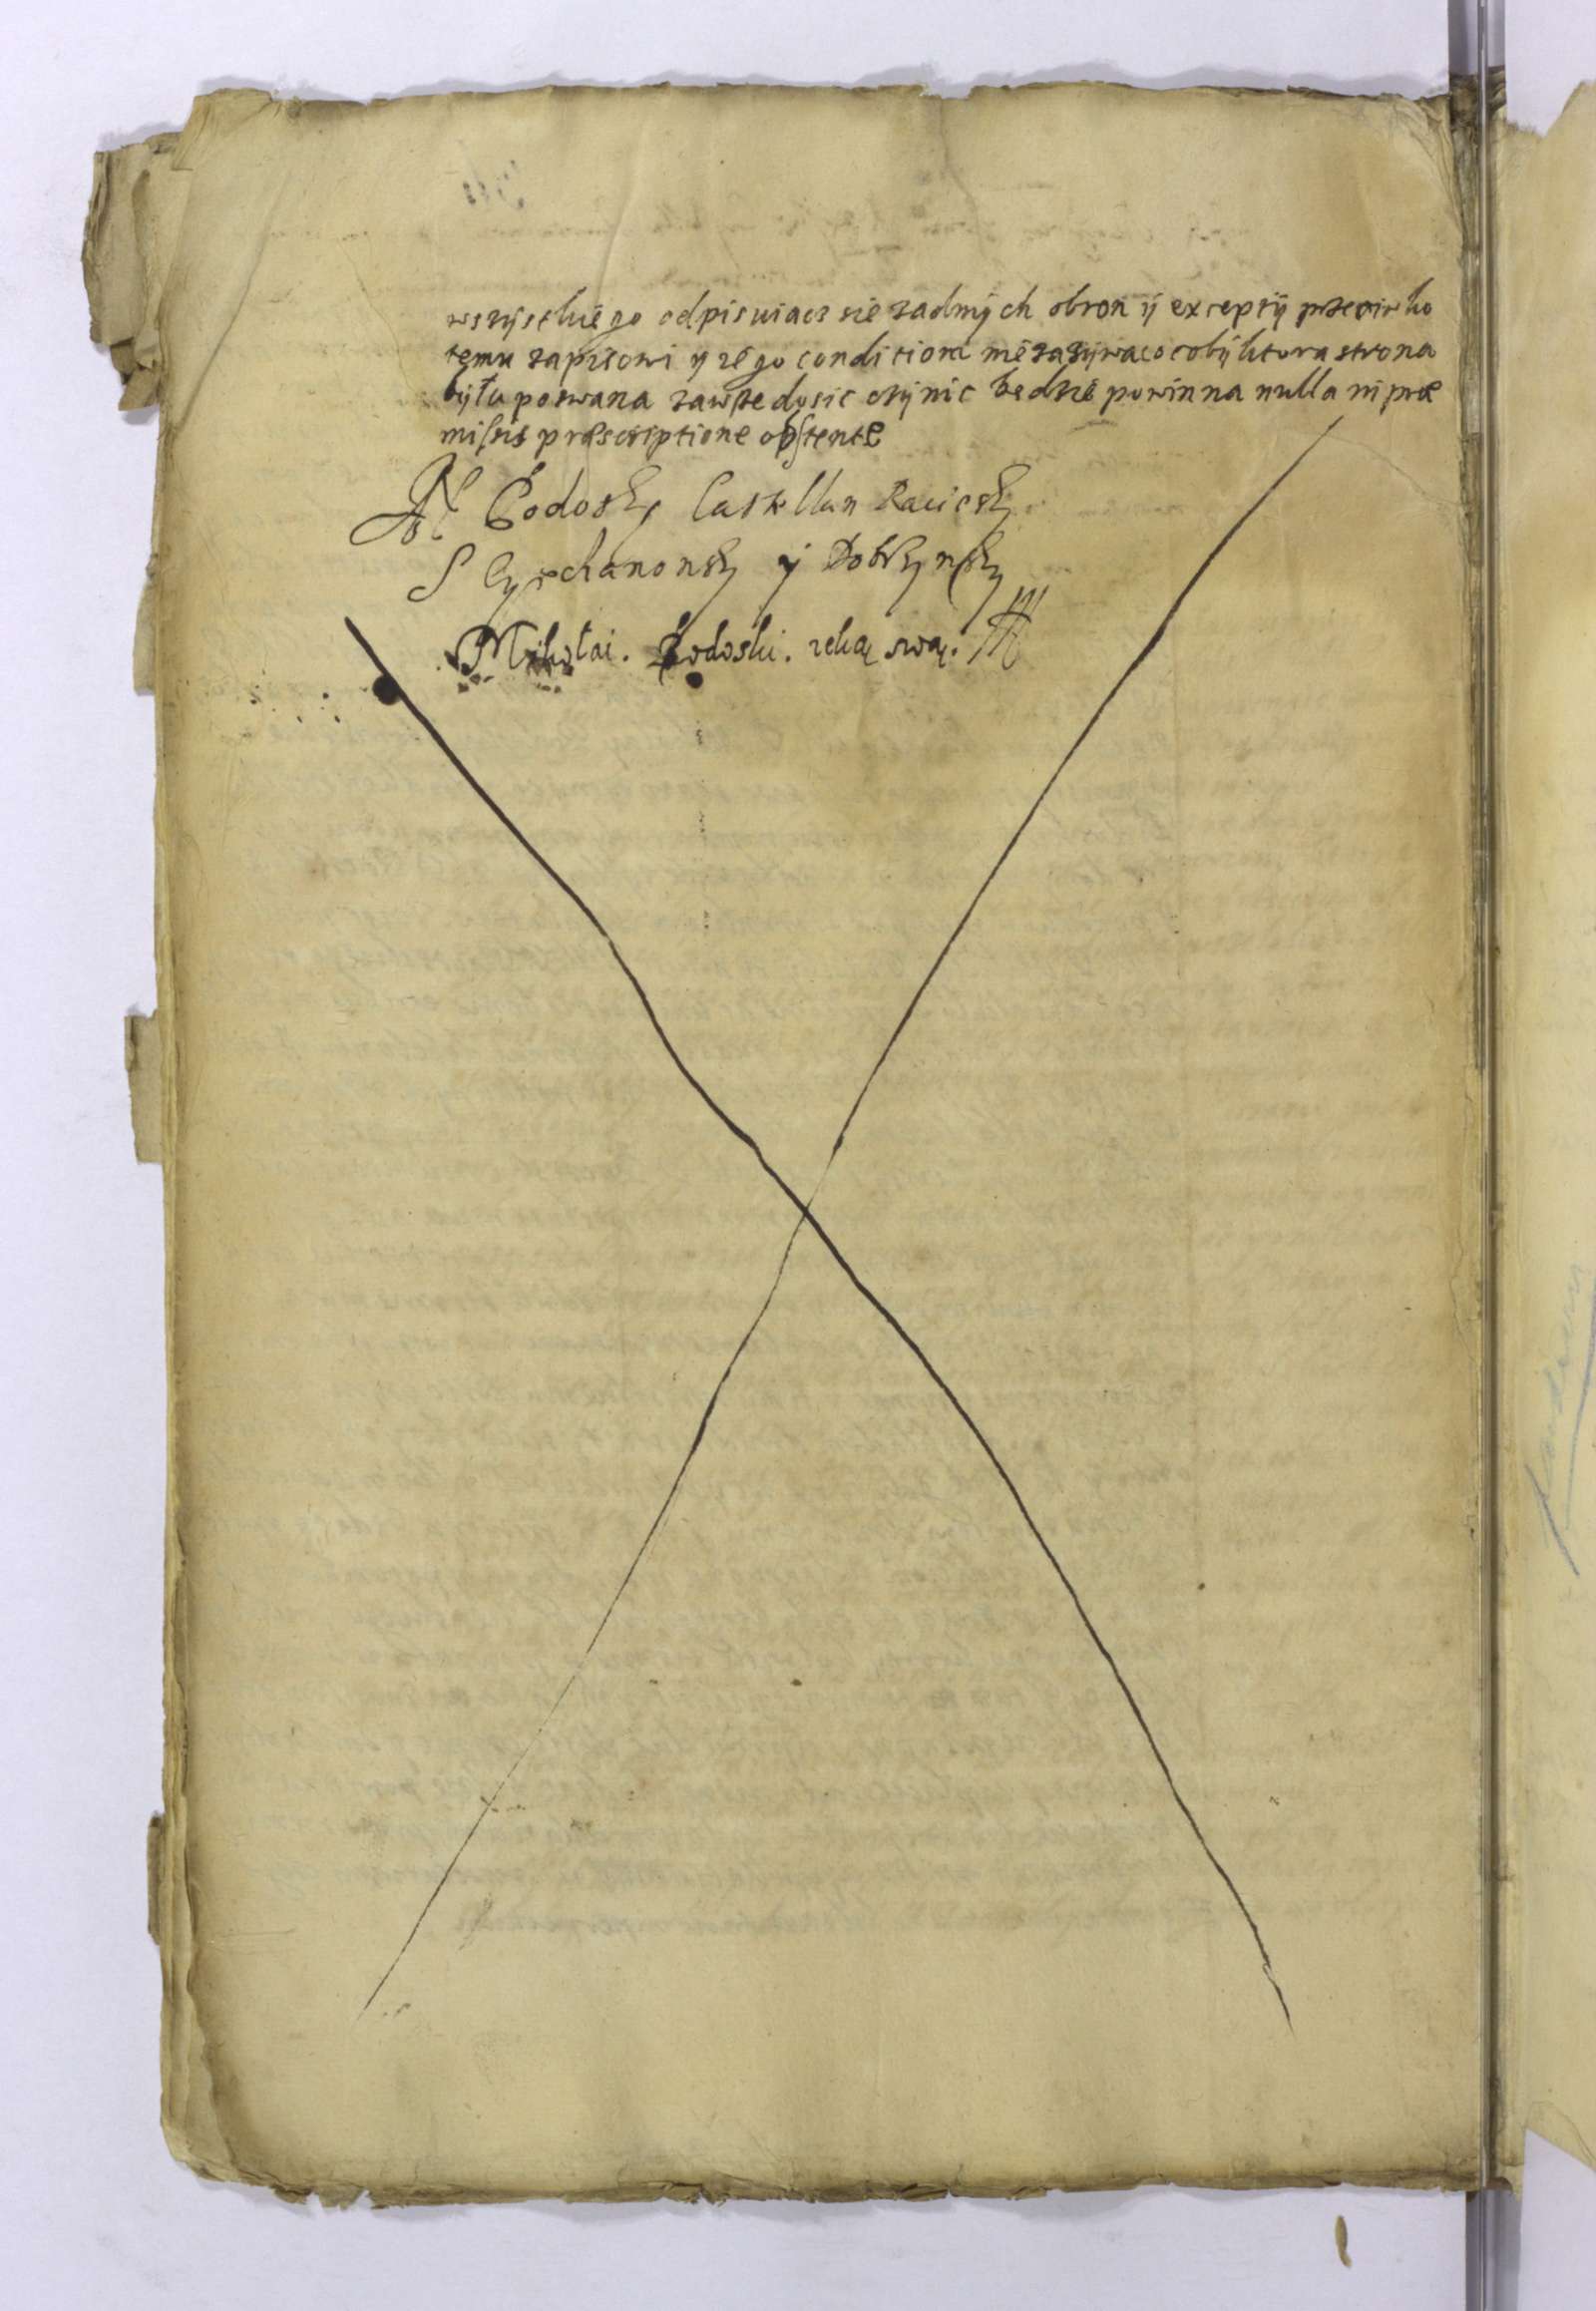 wszystkiego odpisuiącz sie zadnych obron ij exceptij przeciwko
temu zapisowi y iego conditiom nie zazywaiąc o cobij ktora strona
byłu pozwana zawsze dosic czynic bedzie powinna nulla in præ
missis præscriptione obstente
Podosky Castellan Raciesky
S Cyechanonsky y Dobrzynsky
Mikołai . Podoski . reką swą .